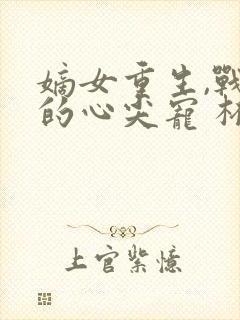 嫡女重生,戰
的心尖寵 林
上官紫憶